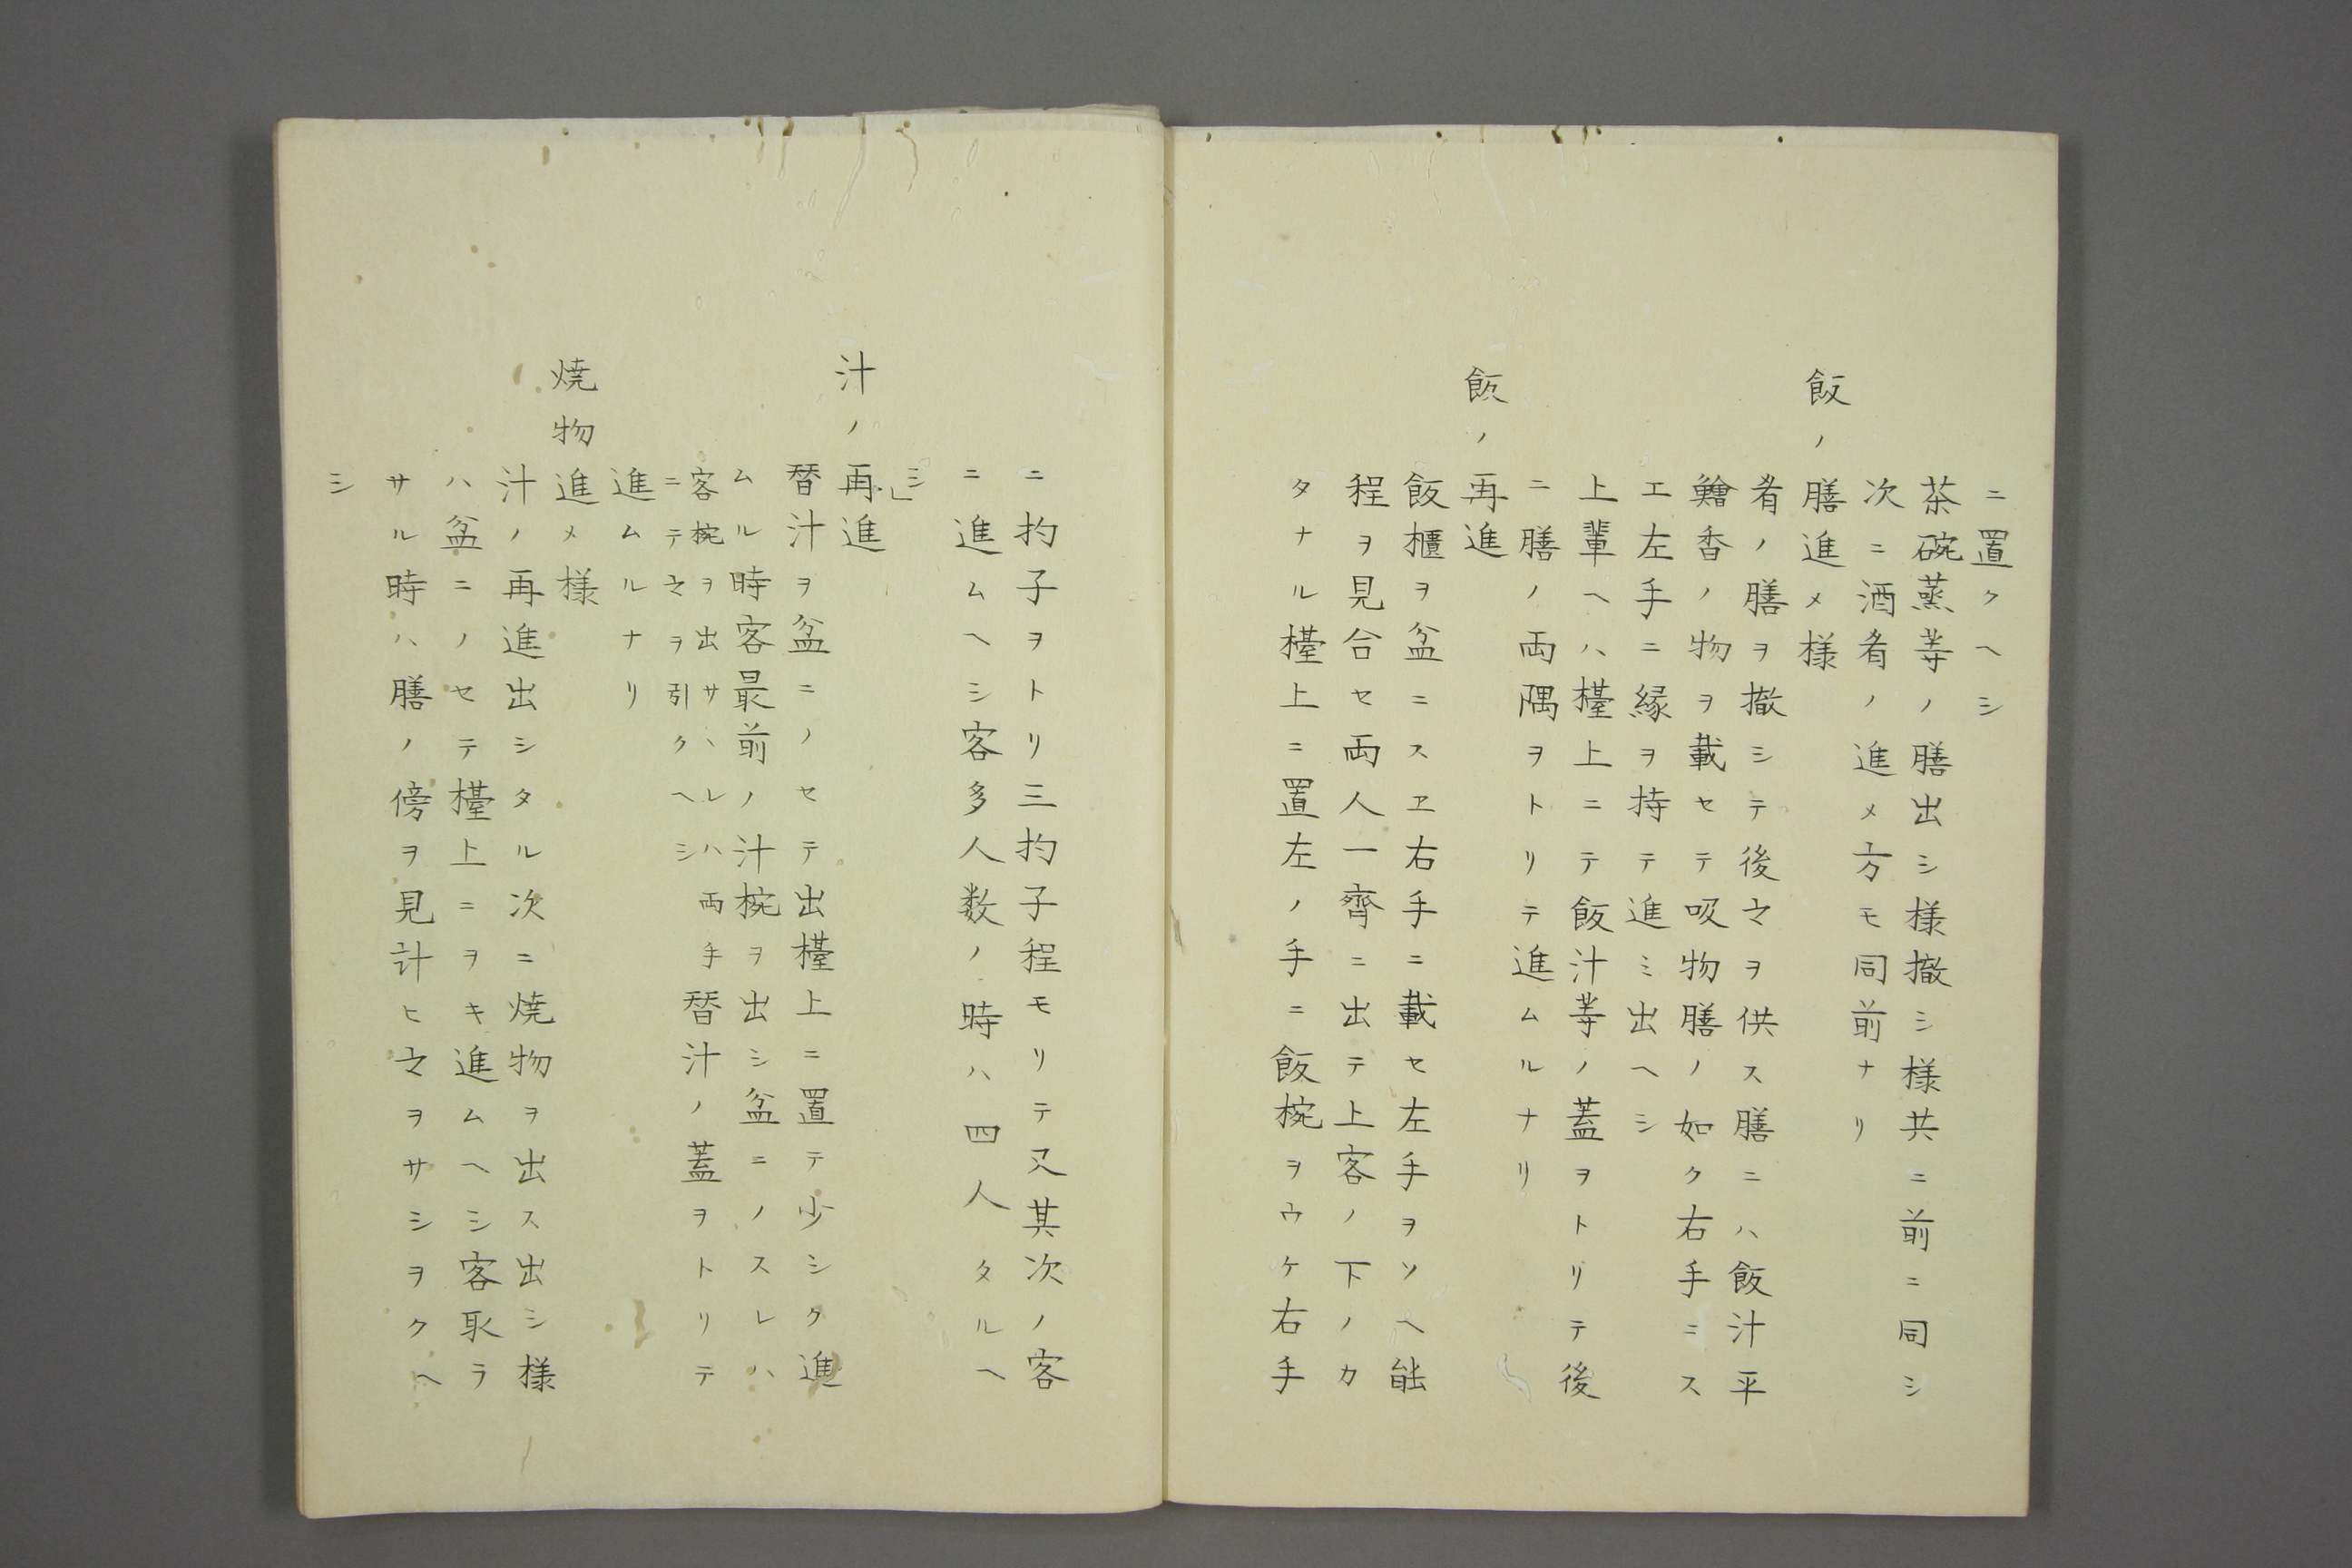 ニ置クヘシ
茶碗蒸等ノ膳出シ様撤シ様共ニ前ニ同シ
次ニ酒肴ノ進メ方モ同前ナリ
飯ノ膳進メ様
肴ノ膳ヲ撤シテ後之ヲ供ス膳ニハ飯汁平
鱠香ノ物ヲ載セテ吸物膳ノ如ク右手ニス
エ左手ニ縁ヲ持テ進ミ出ヘシ
上輩ヘハ檯上ニテ飯汁等ノ蓋ヲトリテ後
ニ膳ノ両隅ヲトリテ進ムルナリ
飯ノ再進
飯櫃ヲ盆ニスヱ右手ニ載セ左手ヲソヘ能
程ヲ見合セ両人一齊ニ出テ上客ノ下ノカ
タナル檯上ニ置左ノ手ニ飯椀ヲウケ右手
ニ杓子ヲトリ三杓子程モリテ又其次ノ客
ニ進ムヘシ客多人数ノ時ハ四人タルヘ
シ」
汁ノ再進
替汁ヲ盆ニノセテ出檯上ニ置テ少シク進
ムル時客最前ノ汁椀ヲ出シ盆ニノスレハ
客椀ヲ出サヽレハ両手
ニテ之ヲ引クヘシ
替汁ノ蓋ヲトリテ
進ムルナリ
焼物進メ様
汁ノ再進出シタル次ニ焼物ヲ出ス出シ様
ハ盆ニノセテ檯上ニヲキ進ムヘシ客取ラ
サル時ハ膳ノ傍ヲ見計ヒ之ヲサシヲクヘ
シ